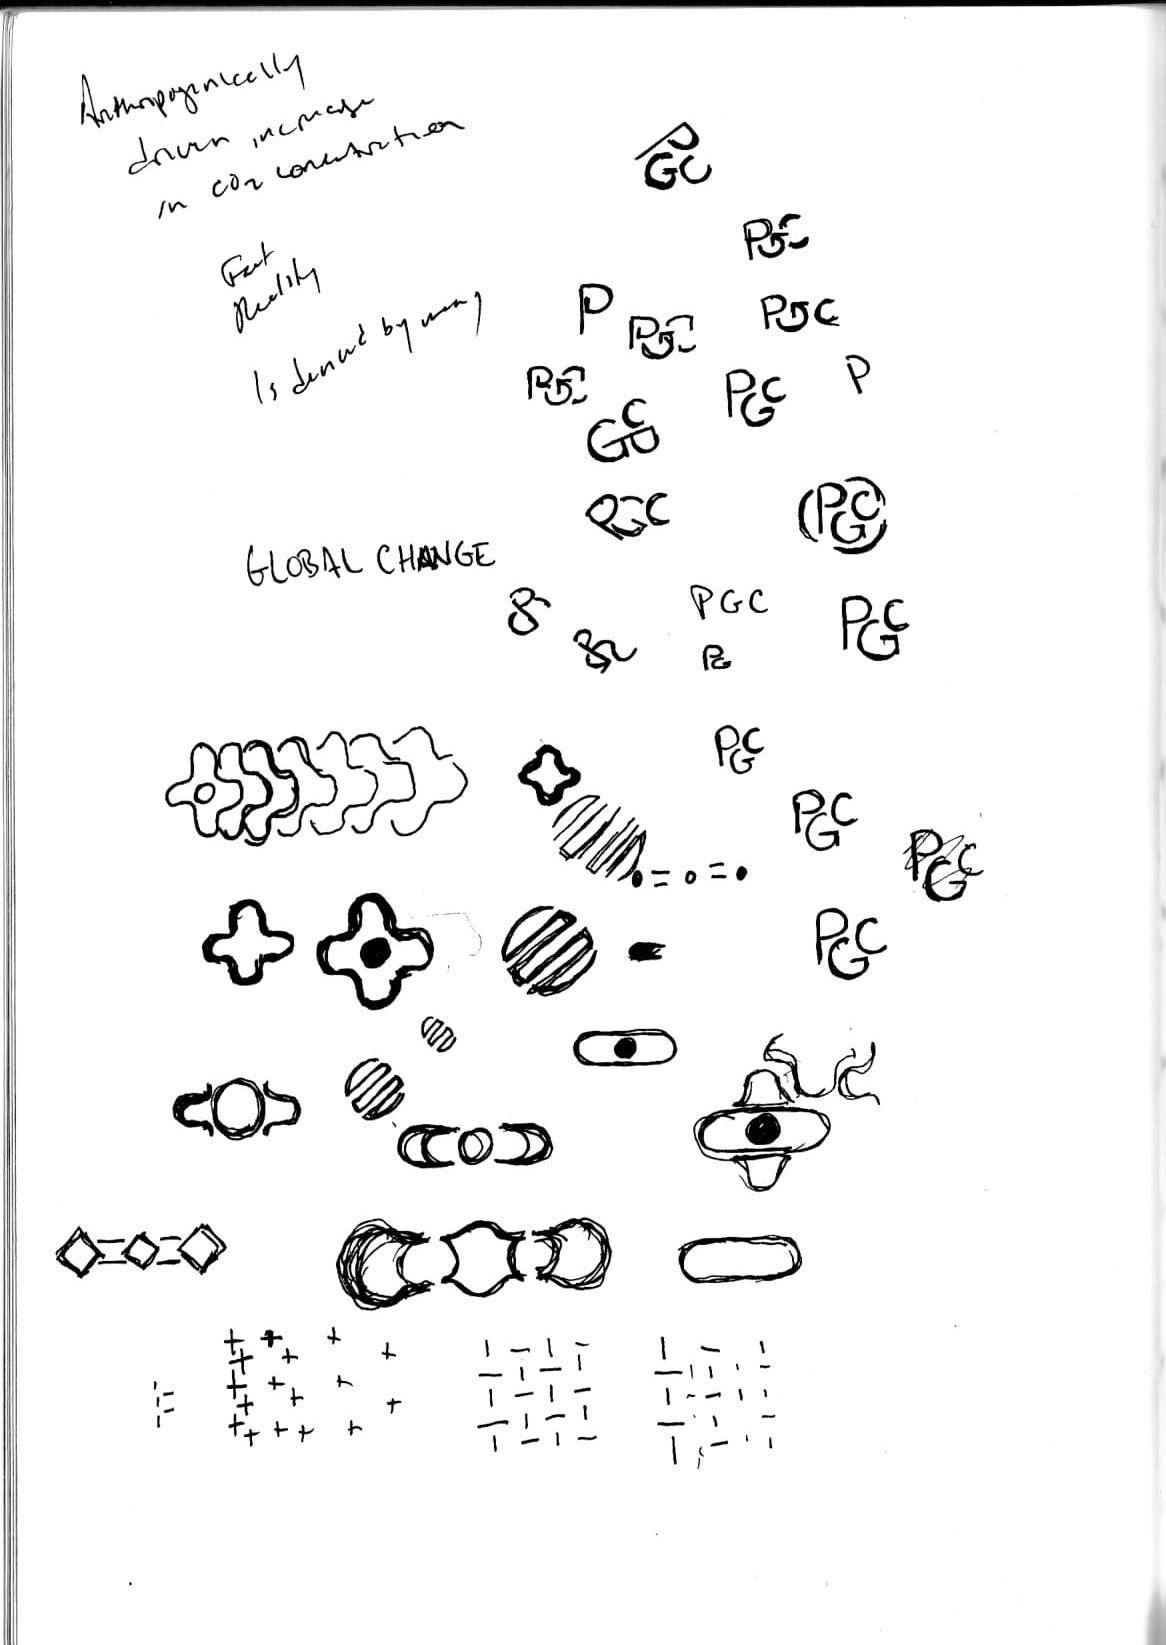 Anthropogenically
driven increase
in CO2 concentration
Fact
Reality
Is denied by many
PGC
PGC
P
PGC
PGC
PGC
PGC
P
GCP
PGC
PGC
GLOBAL CHANGE
PGC
PGC
PG
PGC
PGC
PGC
PGC